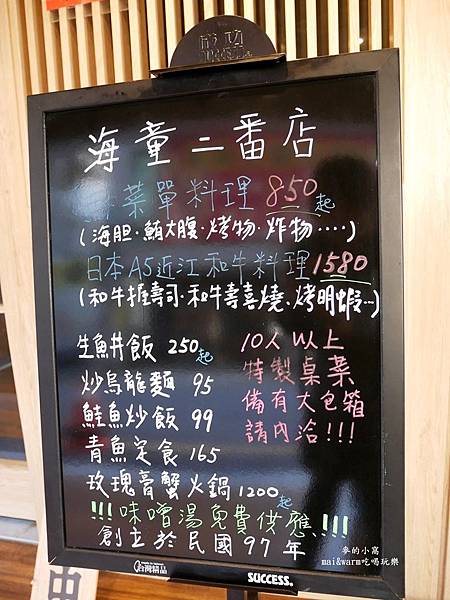 成功
SUCCESS
海童二番店
無菜單料理 850起
(海胆．鮪大腹．烤物．炸物‥‥)
日本A5近江和牛料理1580
(和牛握壽司．和牛壽喜燒、烤明蝦…)
生魚丼飯 250起
炒烏龍麵 95
鮭魚炒飯 99
青魚定食 165
玫瑰膏蟹火鍋 1200起
10人以上
特製桌菜
備有大包箱
請內洽!!!
!!!味噌湯免費供應!!!
創立於民國97年
台灣精品
SUCCESS.
麥的小窩
mai&warm吃喝玩樂